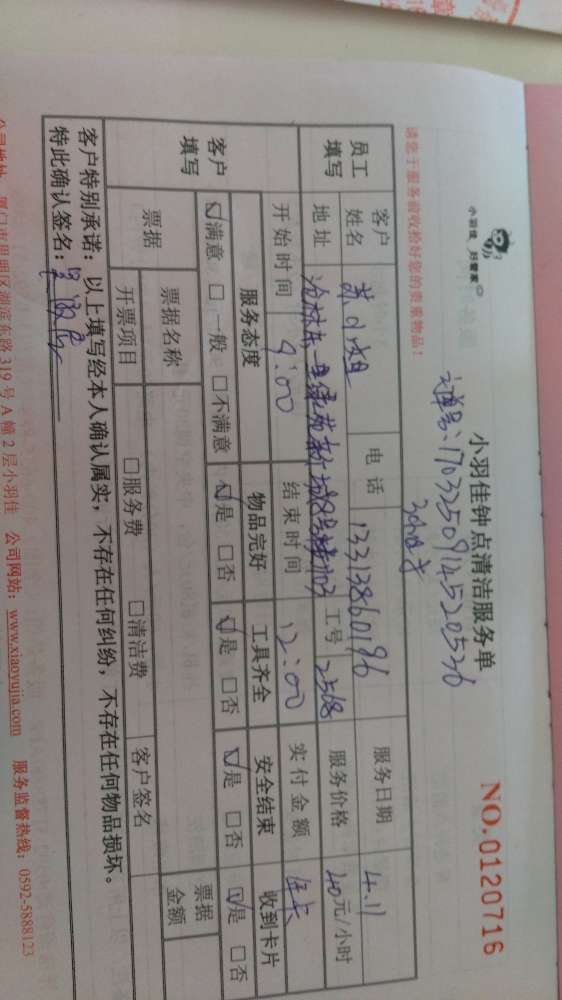 小羽佳 好管家
小羽佳钟点清洁服务单
NO.0120716
订单号:1703250914520536
请您于服务前收检好您的贵重物品!
3小时
员工填写
客户姓名 苏小姐 电话 13313860196 服务日期 4.11
地址 工号 2568 服务价格 40元/小时
开始时间 9:00 结束时间 12:00 实付金额
客户填写
服务态度 物品完好 工具齐全 安全结束 收到卡片
☑满意 □一般 □不满意 ☑是 □否 ☑是 □否 ☑是 □否 ☑是 □否
票据 票据名称 票据金额
开票项目 □服务费 □清洁费 客户签名
客户特别承诺:以上填写经本人确认属实,不存在任何纠纷,不存在任何物品损坏。
特此确认签名:
公司地址:厦门市思明区湖滨东路319号A幢2层小羽佳 公司网站:www.xiaoyujia.com 服务监督热线:0592-5888123